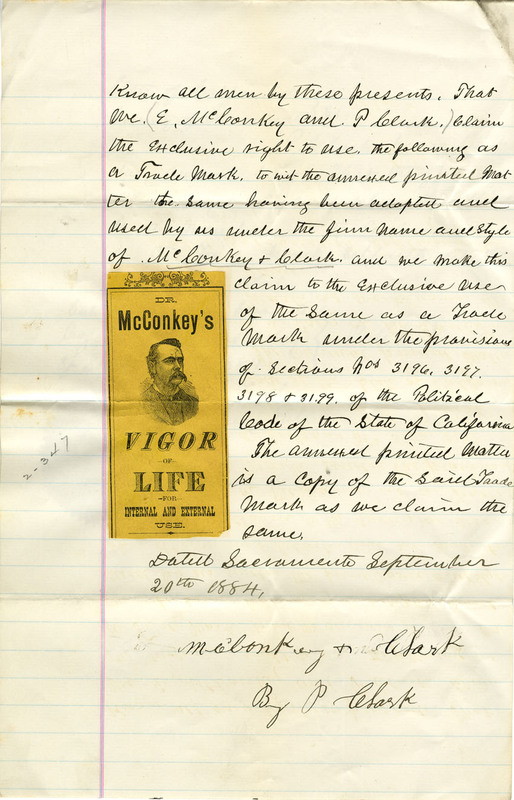 Know all men by these presents. That
We. (E. McConkey and P Clark.) Claim
the Exclusive right to use the following as
a Trade Mark. to wit the annexed printed Mat
ter the same having been adopted and
used by us under the firm name and Style
of McConkey & Clark. and we make this
claim to the Exclusive use
of the Same as a Trade
Mark under the provisions
of Sections Nos 3196, 3197,
3198 & 3199. of the Political
Code of the State of California
The annexed printed Matter
is a Copy of the Said Trade
Mark as we claim the
same.
Dated Sacramento September
20th 1884.
McConkey & Clark
By P Clark
DR.
McConkey's
VIGOR
-OF-
LIFE
-FOR-
INTERNAL AND EXTERNAL
USE.
2-347